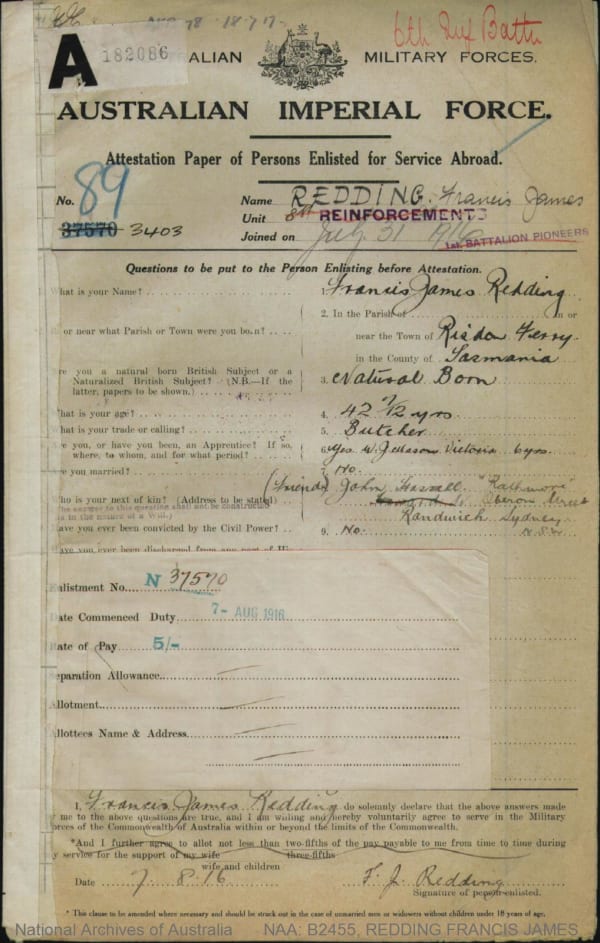 78 18.7.17
6th Inf Battn
A 182086
ALIAN MILITARY FORCES.
AUSTRALIAN IMPERIAL FORCE.
Attestation Paper of Persons Enlisted for Service Abroad.
No. 89
37570 3403
Name REDDING. Francis James
Unit 8th REINFORCEMENTS
Joined on July 31 1916
1st. BATTALION PIONEERS
Questions to be put to the Person Enlisting before Attestation.
hat is your Name? 1. Francis James Redding
or near what Parish or Town were you born? 2. In the Parish of in or
near the Town of Risdon Ferry.
in the County of Tasmania
re you a natural born British Subject or a
Naturalized British Subject? (N.B.—If the
latter, papers to be shown.) 3. Natural Born
hat is your age? 4. 42 7/12 yrs.
hat is your trade or calling? 5. Butcher
re you, or have you been, an Apprentice? If so,
where, to whom, and for what period? 6. Yes. W. Jackson Victoria 6yrs.
re you married? 7. No.
ho is your next of kin? (Address to be stated) (Friend) John "Rathmore"
he answer to this question shall not be constructed
s in the nature of a Will.)
Oberon Street
Randwick Sydney
N.S.W
ave you ever been convicted by the Civil Power? 9. No.
ave you ever been discharged from any part of Hi
nlistment No. N 37570
ate Commenced Duty 7- AUG 1916
ate of Pay 5/-
eparation Allowance
llotment
llottees Name & Address
I, Francis James Redding do solemnly declare that the above answers made
y me to the above questions are true, and I am willing and hereby voluntarily agree to serve in the Military
orces of the Commonwealth of Australia within or beyond the limits of the Commonwealth.
*And I further agree to allot not less than two-fifths of the pay payable to me from time to time during
three-fifths
y service for the support of my wife
wife and children
Date 7. 8. 16 F. J. Redding
Signature of person enlisted.
* This clause to be amended where necessary and should be struck out in the case of unmarried men or widowers without children under 18 years of age.
National Archives of Australia NAA: B2455, REDDING FRANCIS JAMES